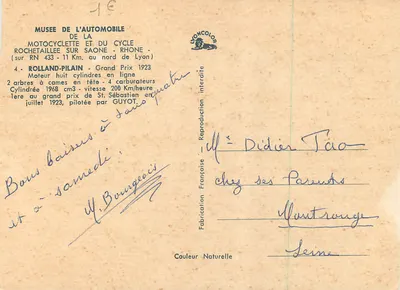 1€
MUSEE DE L'AUTOMOBILE
DE LA
MOTOCYCLETTE ET DU CYCLE
ROCHETAILLEE SUR SAONE - RHONE -
(sur RN 433 - 11 Km. au nord de Lyon)
4 - ROLLAND-PILAIN - Grand Prix 1923
Moteur huit cylindres en ligne
2 arbres à cames en tête - 4 carburateurs
Cylindrée 1968 cm3 - vitesse 200 Km/heure
1ere au grand prix de St. Sébastien en
juillet 1923, pilotée par GUYOT.
Bons baisers à tous quatre
et à samedi.
M. Bourgeois
LYONCOLOR
Fabrication Française - Reproduction interdite
Couleur Naturelle
Didier Tao
chez ses Parents
Montrouge
Seine